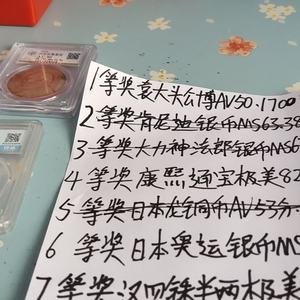 1等奖袁大头公博AV50.1700
2等奖肯尼迪银币MS63.38
3等奖大力神法郎银币MS6
4等奖康熙通宝极美82
5等奖日本龙铜币AV53分
6等奖日本奥运银币MS
7等奖汉四铢半两极美